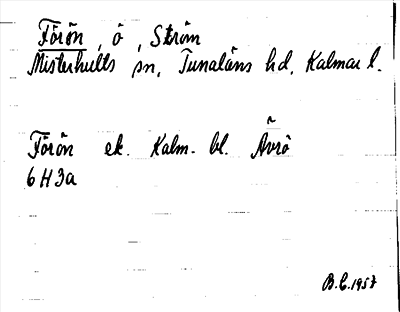 Förön, ö, Ström
Misterhults sn, Tunaläns hd, Kalmar l.
Förön ek. Kalm. bl. Ävrö
6H3a
B.C. 1957